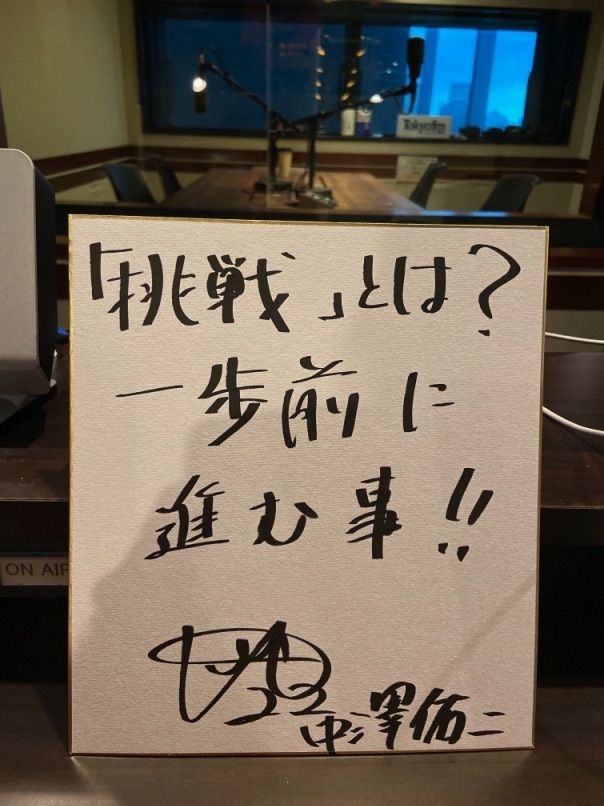 Tokyofm
「挑戦」とは?
一歩前に
進む事!!
ON AIR
中澤佑二